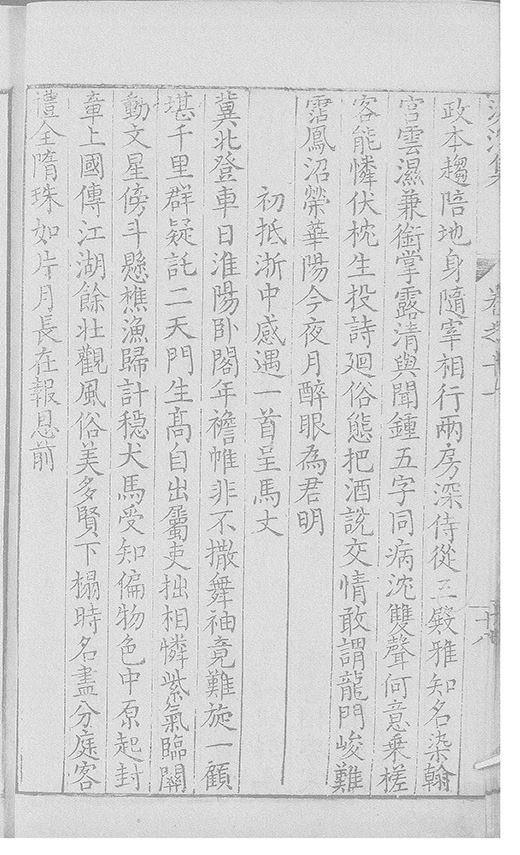 政本趨陪地身隨宰相行兩房深侍從三殿雅知名染翰
宮雲濕兼銜掌露清與聞鍾五字同病沈雙聲何意乗槎
客能憐伏枕生投詩廻俗態把酒說交情敢謂龍門峻難
霑鳳沼榮華陽今夜月醉眼為君明
初抵浙中感遇一首呈馬丈
冀北登車日淮陽卧閣年襜帷非不撒舞袖竟難旋一顧
堪千里群疑託二天門生髙自出屬吏拙相憐紫氣臨關
動文星傍斗懸樵漁歸計穏犬馬受知偏物色中原起封
章上國傳江湖餘壯觀風俗美多賢下榻時名盡分庭客
禮全隋珠如片月長在報恩前